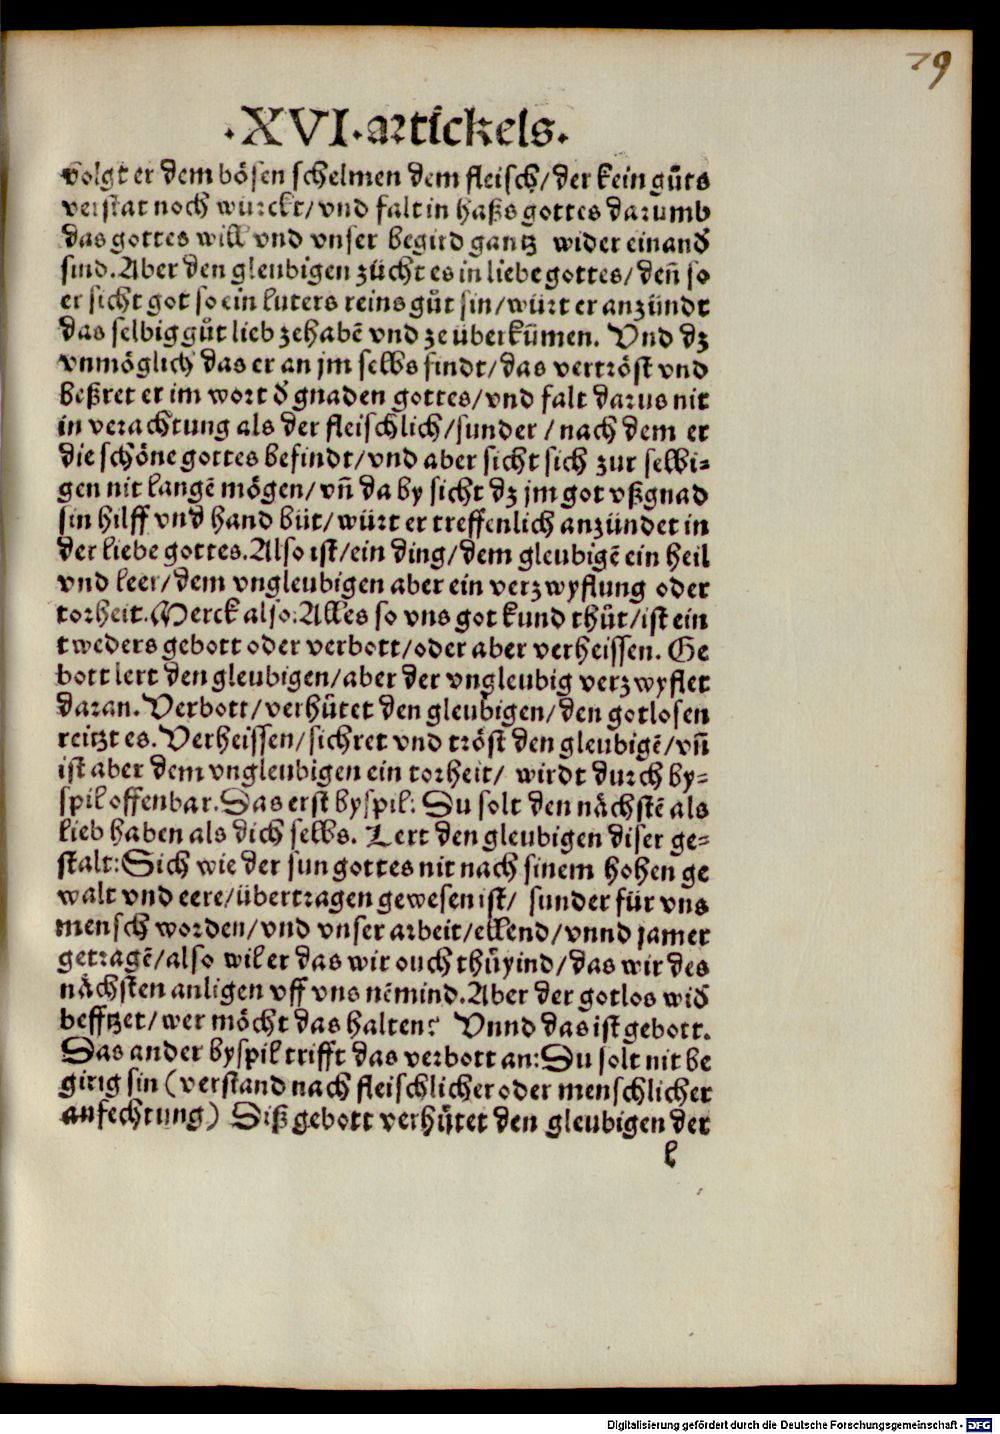 79
·XVI·artickels.
volgt er dem bösen schelmen dem fleisch/der kein gůts
verstat noch würckt/vnd falt in haßs gottes darumb
das gottes will vnd vnser begird gantz wider einand̕
sind. Aber den gleubigen zücht es in liebe gottes/deñ so
er sicht got so ein luters reins gůt sin/würt er anzündt
das selbig gůt lieb zehabē vnd ze überkum̄en. Vnd dz
vnmöglich das er an jm selbs findt/das vertröst vnd
beßret er im wort d̕ gnaden gottes/vnd falt darus nit
in verachtung als der fleischlich/sunder/nach dem er
die schöne gottes befindt/vnd aber sicht sich zur selbi⸗
gen nit langē mögen/vñ da by sicht dz jm got vß gnad
sin hilff vnd hand büt/würt er treffenlich anzündet in
der liebe gottes. Also ist/ein ding/dem gleubigē ein heil
vnd leer/dem vngleubigen aber ein verzwyflung oder
torheit. Merck also: Alles so vns got kund thůt/ist ein
tweders gebott oder verbott/oder aber verheissen. Ge
bott lert den gleubigen/aber der vngleubig verzwyflet
daran. Verbott/verhůtet den gleubigen/den gotlosen
reitzt es. Verheissen/sichret vnd tröst den gleubigē/vñ
ist aber dem vngleubigen ein torheit/ wirdt durch by⸗
spil offenbar. Das erst byspil: Du solt den nächstē als
lieb haben als dich selbs. Lert den gleubigen diser ge⸗
stalt: Sich wie der sun gottes nit nach sinem hohen ge
walt vnd eere/übertragen gewesen ist/ sunder für vns
mensch worden/vnd vnser arbeit/ellend/vnnd jamer
getragē/also wil er das wir ouch thůyind/das wir des
nächsten anligen vff vns nēmind. Aber der gotlos wid̕
befftzet/wer möcht das halten? Vnnd das ist gebott.
Das ander byspil trifft das verbott an: Du solt nit be
girig sin (verstand nach fleischlicher oder menschlicher
anfechtung) Diß gebott verhůtet den gleubigen der
l
Digitalisierung gefördert durch die Deutsche Forschungsgemeinschaft - DFG